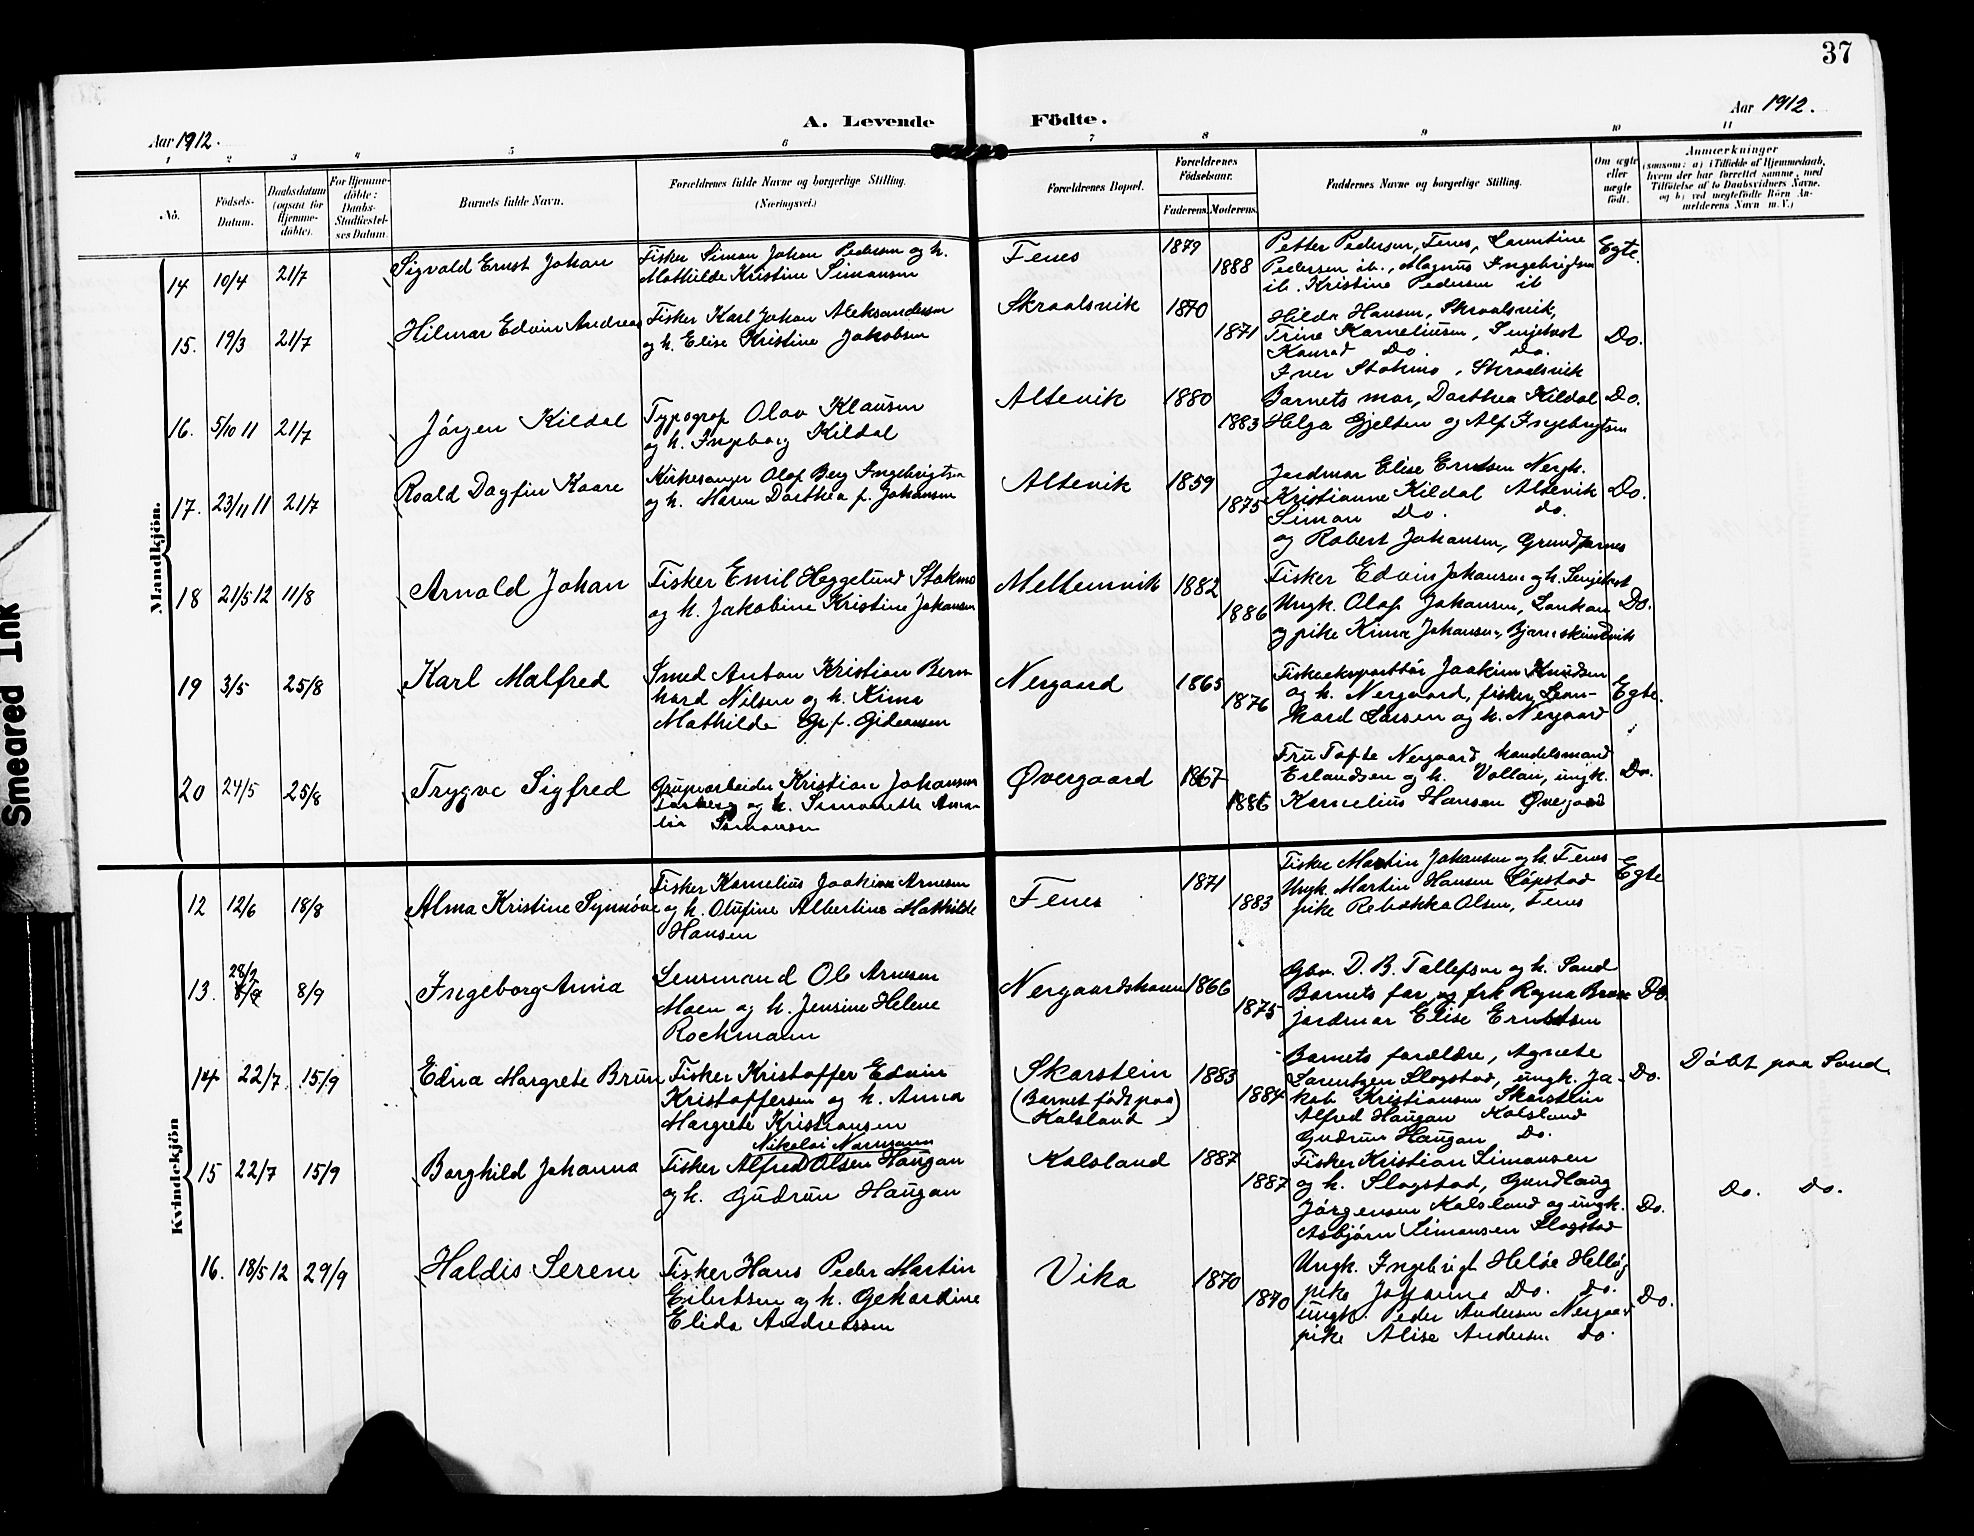 37
A. Levende Födte.
Aar 1912.
Aar 1912.
1 2 3 4 5 6 7 8 9 10 11
No.
Födsels-
Datum.
Daabsdatum
(ogsaa for
Hjemme-
döbte).
For Hjemme-
döbte:
Daabs-
Stadfæstel-
ses Datum.
Barnets fulde Navn.
Forældrenes fulde Navne og borgerlige Stilling.
(Næringsvei.)
Forældrenes Bopæl.
Forældrenes
Födselsaar.
Faderens. Moderens.
Faddernes Navne og borgerlige Stilling.
Om ægte
eller
uægte
födt.
Anmærkninger
(saasom: a) i Tilfælde af Hjemmedaab,
hvem der har forrettet samme, med
Tilföielse af to Daabsvidners Navne.
og b) ved uægtefödte Börn An-
melderens Navn m. V.)
Mandkjön.
14 10/4 21/7
Sigvald Ernst Johan
Fisker Simon Johan Pedersen og h.
Mathilde Kristine Simonsen
Fenes
1879
1888
Petter Pedersen, Fenes, Laurentine
Pedersen ib., Magnus Ingebrigtsen
ib. Kristine Pedersen ib
Egte.
15. 19/3 21/7
Hilmar Edvin Andreas
Fisker Karl Johan Aleksandersen
og h. Elise Kristine Jakobsen
Skraalsvik
1870
1871
Hilda Hansen, Skraalsvik,
Trine Korneliusen, Senjehest
Konrad Do. Do.
Iver Stokmo, Skraalsvik
Do.
16. 5/10 11 21/7
Jørgen Kildal
Typograf Olav Klausen
og h. Ingeborg Kildal
Altevik
1880
1883
Barnets mor, Dorthea Kildal
Helga Gjelsen og Alf Ingebrigtsen
Do.
17. 23/11 11 21/7
Roald Dagfin Kaare
Kirkesanger Olaf Berg Ingebrigtsen
og h. Maren Dorthea f. Johansen
Altevik
1859
1875
Jordmor Elise Erntsen Nergh.
Kristianne Kildal Altevik
Simon Do. do.
og Robert Johansen, Grundfarnes
Do.
18 21/5 12 11/8
Arnold Johan
Fisker Emil Heggelund Stokmo
og h. Jakobine Kristine Johansen
Mellemvik
1882
1886
Fisker Edvin Johansen og h. Senjehest
Ungk. Olaf Johansen, Lankan
og pike Kima Johansen, Bjørneskindvik
Do.
19 3/5 25/8
Karl Malfred
Smed Anton Kristian Bern-
hard Nilsen og h. Kima
Mathilde f. Gideonsen
Nergaard
1865
1876
Fiskeeksportør Joakim Knudsen
og h. Nergaard, fisker Leon-
hard Larsen og h. Nergaard
Egte.
20 24/5 25/8
Trygve Sigfred
Grupearbeider Kristian Johansen
og h. Simonette Ama-
lia Simonsen
Øvergaard
1867
1886
Fru Tofte Nergaard, handelsmand
Erlandsen og h. Vollan, ungk.
Kornelius Hansen Øvergaard
Do.
Kvindekjön
12 12/6 18/8
Alma Kristine Synnøve
Fisker Kornelius Joakim Arnesen
og h. Olufine Albertine Mathilde
Hansen
Fenes
1871
1883
Fisker Martin Johansen og h. Fenes
Ungk. Martin Hansen Løpstad
pike Rebekka Olsen, Fenes
Egte
13. 28/2 8/9
Ingeborg Anna
Lensmand Ole Arnesen
Moen og h. Jensine Helene
Rockmann
Nergaardshavn
1866
1875
Gbr. D. B. Tollefsen og h. Sand
Barnets far og frk Ragna Brox
jordmor Elise Erntsen
Do.
14 22/7. 15/9
Edna Margrete Brun
Fisker Kristoffer Edvin
Kristoffersen og h. Anna
Margrete Kristiansen
Skarstein
(Barnet født paa
Kalsland)
1883
1884
Barnets forældre, Agnete
Lorentzen Slogstad, ungk. Ja-
kob Kristiansen Skarstein
Alfred Haugan Kalsland
Gudrun Haugan Do.
Do.
Døbt paa Sand.
15 22/7 15/9
Borghild Johanna
Nikolai Normann
Fisker Alfred Olsen Haugan
og h. Gudrun Haugan
Kalsland
1887
1887
Fisker Kristian Simonsen
og h. Slogstad, Gundlaug
Jørgensen Kalsland og ungk.
Asbjørn Simonsen Slogstad
Do.
Do. Do.
16. 18/5 12 29/9
Haldis Serene
Fisker Hans Peder Martin
Eilertsen og h. Gehardine
Elida Andreassen
Vika
1870
1870
Ungk. Ingebrigt Heløe Helløy
pike Johanna Do. do.
ungk. Peder Andersen Nergaard
pike Alise Andersen do.
Do.
Smeared Ink